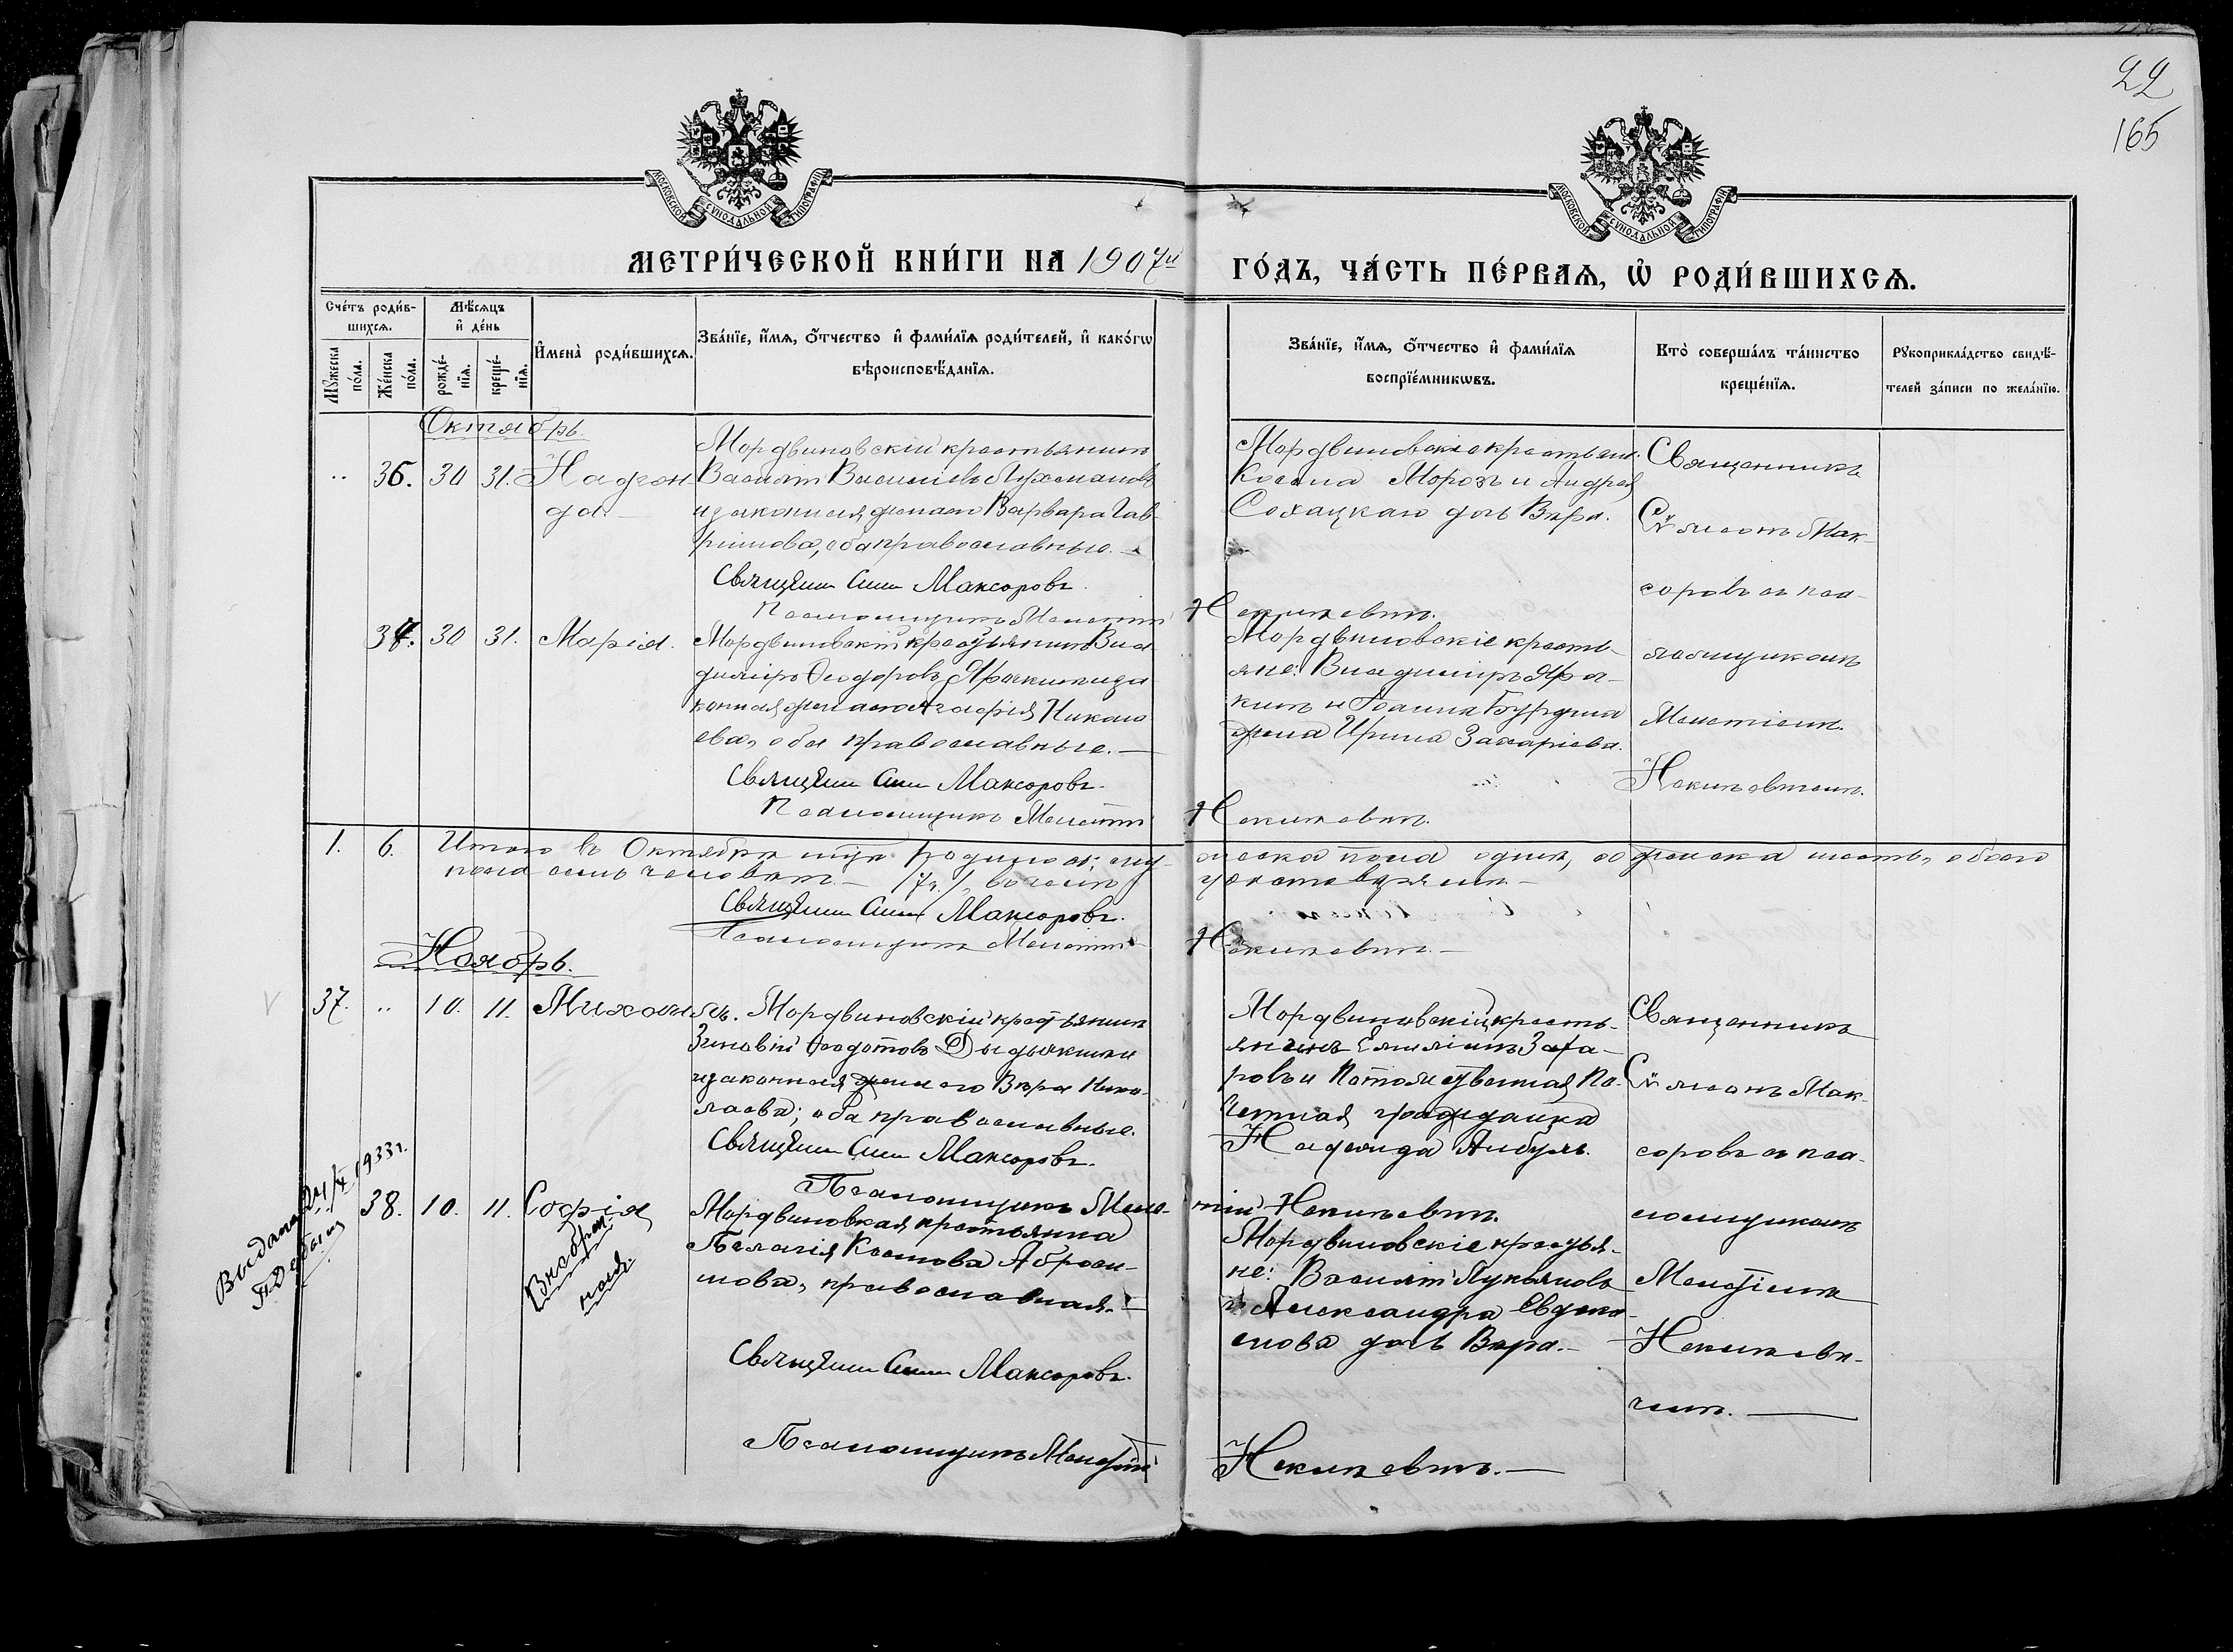 22
165
МОСКОВСКОЙ СѴНОДАЛЬНОЙ ТИПОГРАФІИ
МОСКОВСКОЙ СѴНОДАЛЬНОЙ ТИПОГРАФІИ
МЕТРИ́ЧЕСКОЙ КНИ́ГИ НА 1907й ГО́ДЪ, ЧА́СТЬ ПЕ́РВАѦ, Ѡ҆ РОДИ́ВШИХСѦ.
Сче́тъ роди́в-
шихсѧ.
Мꙋ́жеска по́ла.
Же́нска по́ла.
Мѣ́сѧцъ
и҆ де́нь
рожде́-
нїѧ.
креще́-
нїѧ.
И҆мена̀ роди́вшихсѧ.
Зва́нїе, и҆́мѧ, ѻ҆́тчество и҆ фами́лїѧ роди́телей, и҆ како́гѡ
вѣроисповѣ́данїѧ.
Зва́нїе, и҆́мѧ, ѻ҆́тчество и҆ фами́лїѧ
воспрїе́мникѡвъ.
Кто̀ соверша́лъ та́инство
креще́нїѧ.
Рꙋкоприкла́дство свидѣ́-
телей за́писи по жела́нїю.
Октябрь.
" 36. 30 31. Надеж
да.
Мордвиновскій крестьянинъ
Василій Васильевъ
и законная жена его Варвара Гав-
рилова, оба православные.
Священ Сим Максоровъ.
Псаломщикъ Мелетій Некипевичъ.
Мордвиновскіе крестьяне
Косьма Морозъ и Андрея
Сохацкаго дочь Вѣра.
Священникъ
Сѵмеонъ Мак-
соровъ съ пса-
ломщикомъ
Мелетіемъ
Некипевичемъ.
37. 30 31. Марія.
Мордвиновскій крестьянинъ Вла
диміръ Ѳеодоровъ Яфакинъ и за
конная жена его Агафія Никола
ева, оба православные. —
Священ Сим Максоровъ.
Псаломщикъ Мелетій Некипевичъ.
Мордвиновскіе кресть-
яне: Владиміръ Яфа-
кинъ и Іоанна Бурдина
жена Ирина Захаріева.
1. 6. Итого въ Октябрѣ м-цѣ родилось: муж-
ска пола одинъ, а женска шесть, обоего
пола семь человѣкъ. — /7 ч./, въ чемъ удостовѣряемъ. —
Священ Сим Максоровъ.
Псаломщикъ Мелетій Некипевичъ. —
Ноябрь.
37. " 10. 11. Михаилъ.
Мордвиновскій крестьянинъ
Зиновій Ѳеодотовъ Дыдыкинъ
и законная жена его Вѣра Нико-
лаева; оба православные.
Священ Сим Максоровъ.
Псаломщикъ Меле- тій Некипевичъ.
Мордвиновскій кресть-
янинъ Емиліанъ Заха-
ровъ и Потомственная По-
четная гражданка
Надежда Анбуль.
Священникъ
Сѵмеонъ Мак-
соровъ съ пса-
ломщикомъ
Мелетіемъ
Некипеви-
чемъ. —
Выдана 24/X 1933 г.
38. 10. 11. Софія
Внебрач
ная
Мордвиновская крестьянка
Пелагія Космова Аброси-
мова, православная. —
Священ Сим Максоровъ.
Псаломщикъ Мелетій Некипевичъ. —
Мордвиновскіе крестья-
не: Василій Лукьяновъ
и Александра Евдоки-
мова дочь Вѣра. —